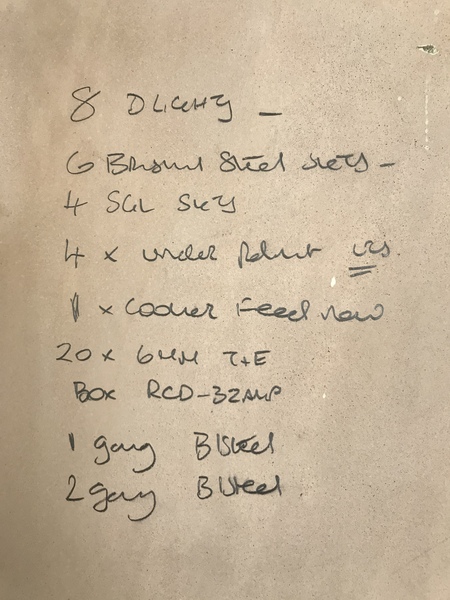 8 DLIGHTS –
6 Brushed Steel skts –
4 SGL SKTS
4 x under
1 x Cooker Feed new
20 x 6MM T+E
Box RCD-32AMP
1 gang B/Steel
2 gang B/Steel